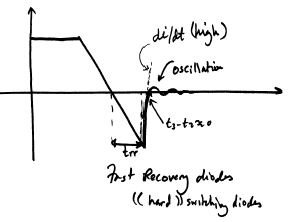 di/dt (high)
oscillation
t3-t2≈0
trr
Fast Recovery diodes
((hard)) switching diodes